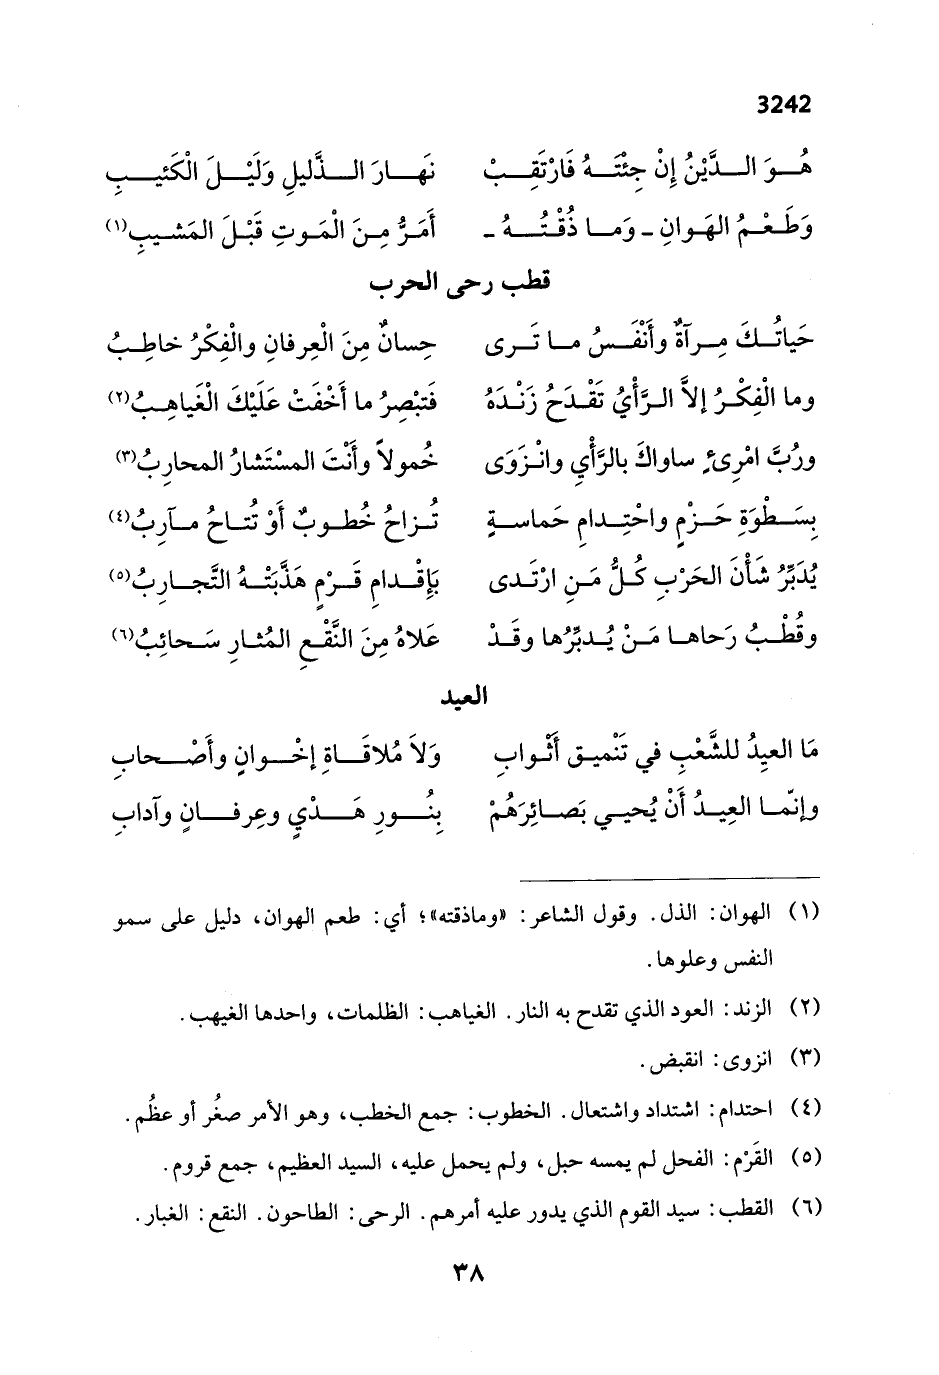 3242
هُـوَ الـدَّيْنُ إِنْ جِئْتَـهُ فَارْتَقِـبْ نَهـارَ الـذَّلِيلِ وَلَيْـلَ الْكَئيـبِ
وَطَعْمُ الهَوانِ ـ وَما ذُقْتُـهُ ـ أَمَرُّ مِنَ الْمَوتِ قَبْلَ المَشيبِ(١)
قطب رحى الحرب
حَياتُـكَ مِرآةٌ وأَنْفَسُ ما تَـرى حِسانٌ مِنَ الْعِرفانِ والْفِكْرُ خاطِبُ
وما الْفِكْرُ إلاَّ الرَّأْيُ تَقْدَحُ زَنْدَهُ فَتبْصِرُ ما أَخْفَتْ عَلَيْكَ الْغَياهِبُ(٢)
ورُبَّ امْرِئٍ ساواكَ بالرَّأْيِ وانْزَوَى خُمولاً وأَنْتَ المسْتَشارُ المحارِبُ(٣)
بِسَطْوَةِ حَزْمٍ واحْتِدامِ حَماسةٍ تُـزاحُ خُطوبٌ أَوْ تُتاحُ مآرِبُ(٤)
يُدَبِّرُ شَأْنَ الحَرْبِ كُلُّ مَنِ ارْتَدى بَإِقْدامِ قَرْمٍ هَذَّبَتْـهُ التَّجارِبُ(٥)
وقُطْبُ رَحاها مَنْ يُدبِّرُها وقَدْ عَلاهُ مِنَ النَّقْعِ المُثارِ سَحائِبُ(٦)
العيد
مَا العيِدُ للشَّعْبِ في تَنْميقِ أَثْوابِ وَلاَ مُلاقَاةِ إخْوانٍ وأَصْحابِ
وإنّما العِيدُ أَنْ يُحيي بَصائِرَهُمْ بِنُورِ هَـذْيٍ وعِرفانٍ وآدابِ
(١) الهوان: الذل. وقول الشاعر: «وماذقته»؛ أي: طعم الهوان، دليل على سمو
النفس وعلوها.
(٢) الزند: العود الذي تقدح به النار. الغياهب: الظلمات، واحدها الغيهب.
(٣) انزوى: انقبض.
(٤) احتدام: اشتداد واشتعال. الخطوب: جمع الخطب، وهو الأمر صغُر أو عظُم.
(٥) القَرْم: الفحل لم يمسه حبل، ولم يحمل عليه، السيد العظيم، جمع قروم.
(٦) القطب: سيد القوم الذي يدور عليه أمرهم. الرحى: الطاحون. النقع: الغبار.
٣٨